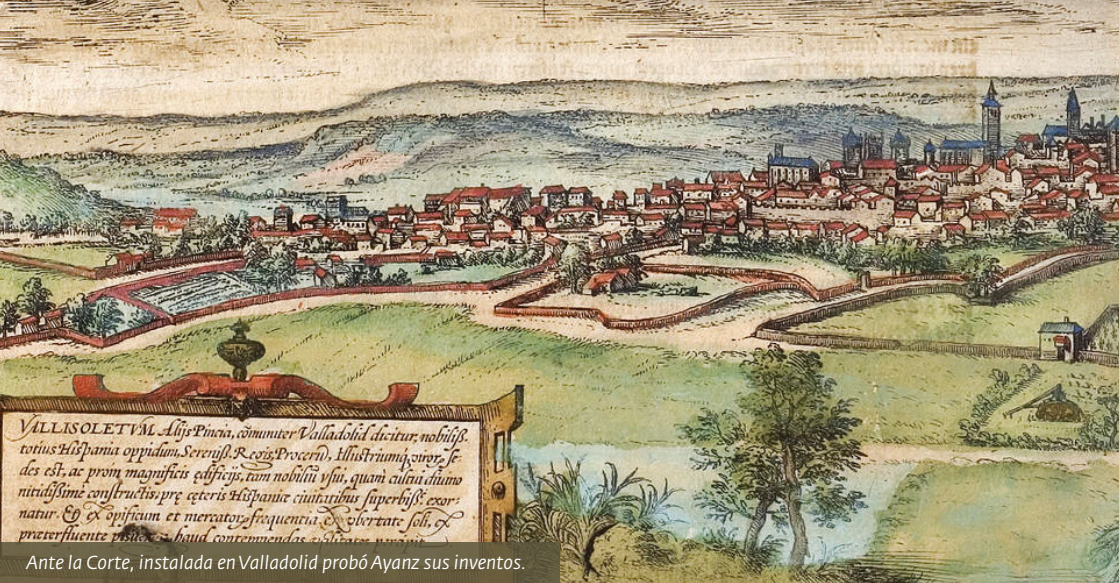 VALLISOLETVM, Alijs Pincia, cōmuniter Valladolid dicitur, nobiliß.
totius Hispania oppidum, Sereniß. Regis, Procerū, Illustriumq₃ viror₃ se-
des est, ac proin magnificis ędificijs, tam nobiliū vsui, quam cultui diuino
nitidißimè constructis, prę cęteris Hispaniæ ciuitatibus superbiß: exor-
natur. Eq ex opificum et mercator₃ frequentia, ex vbertate soli, ex
præterfluente haud contemnendas
Ante la Corte, instalada en Valladolid probó Ayanz sus inventos.